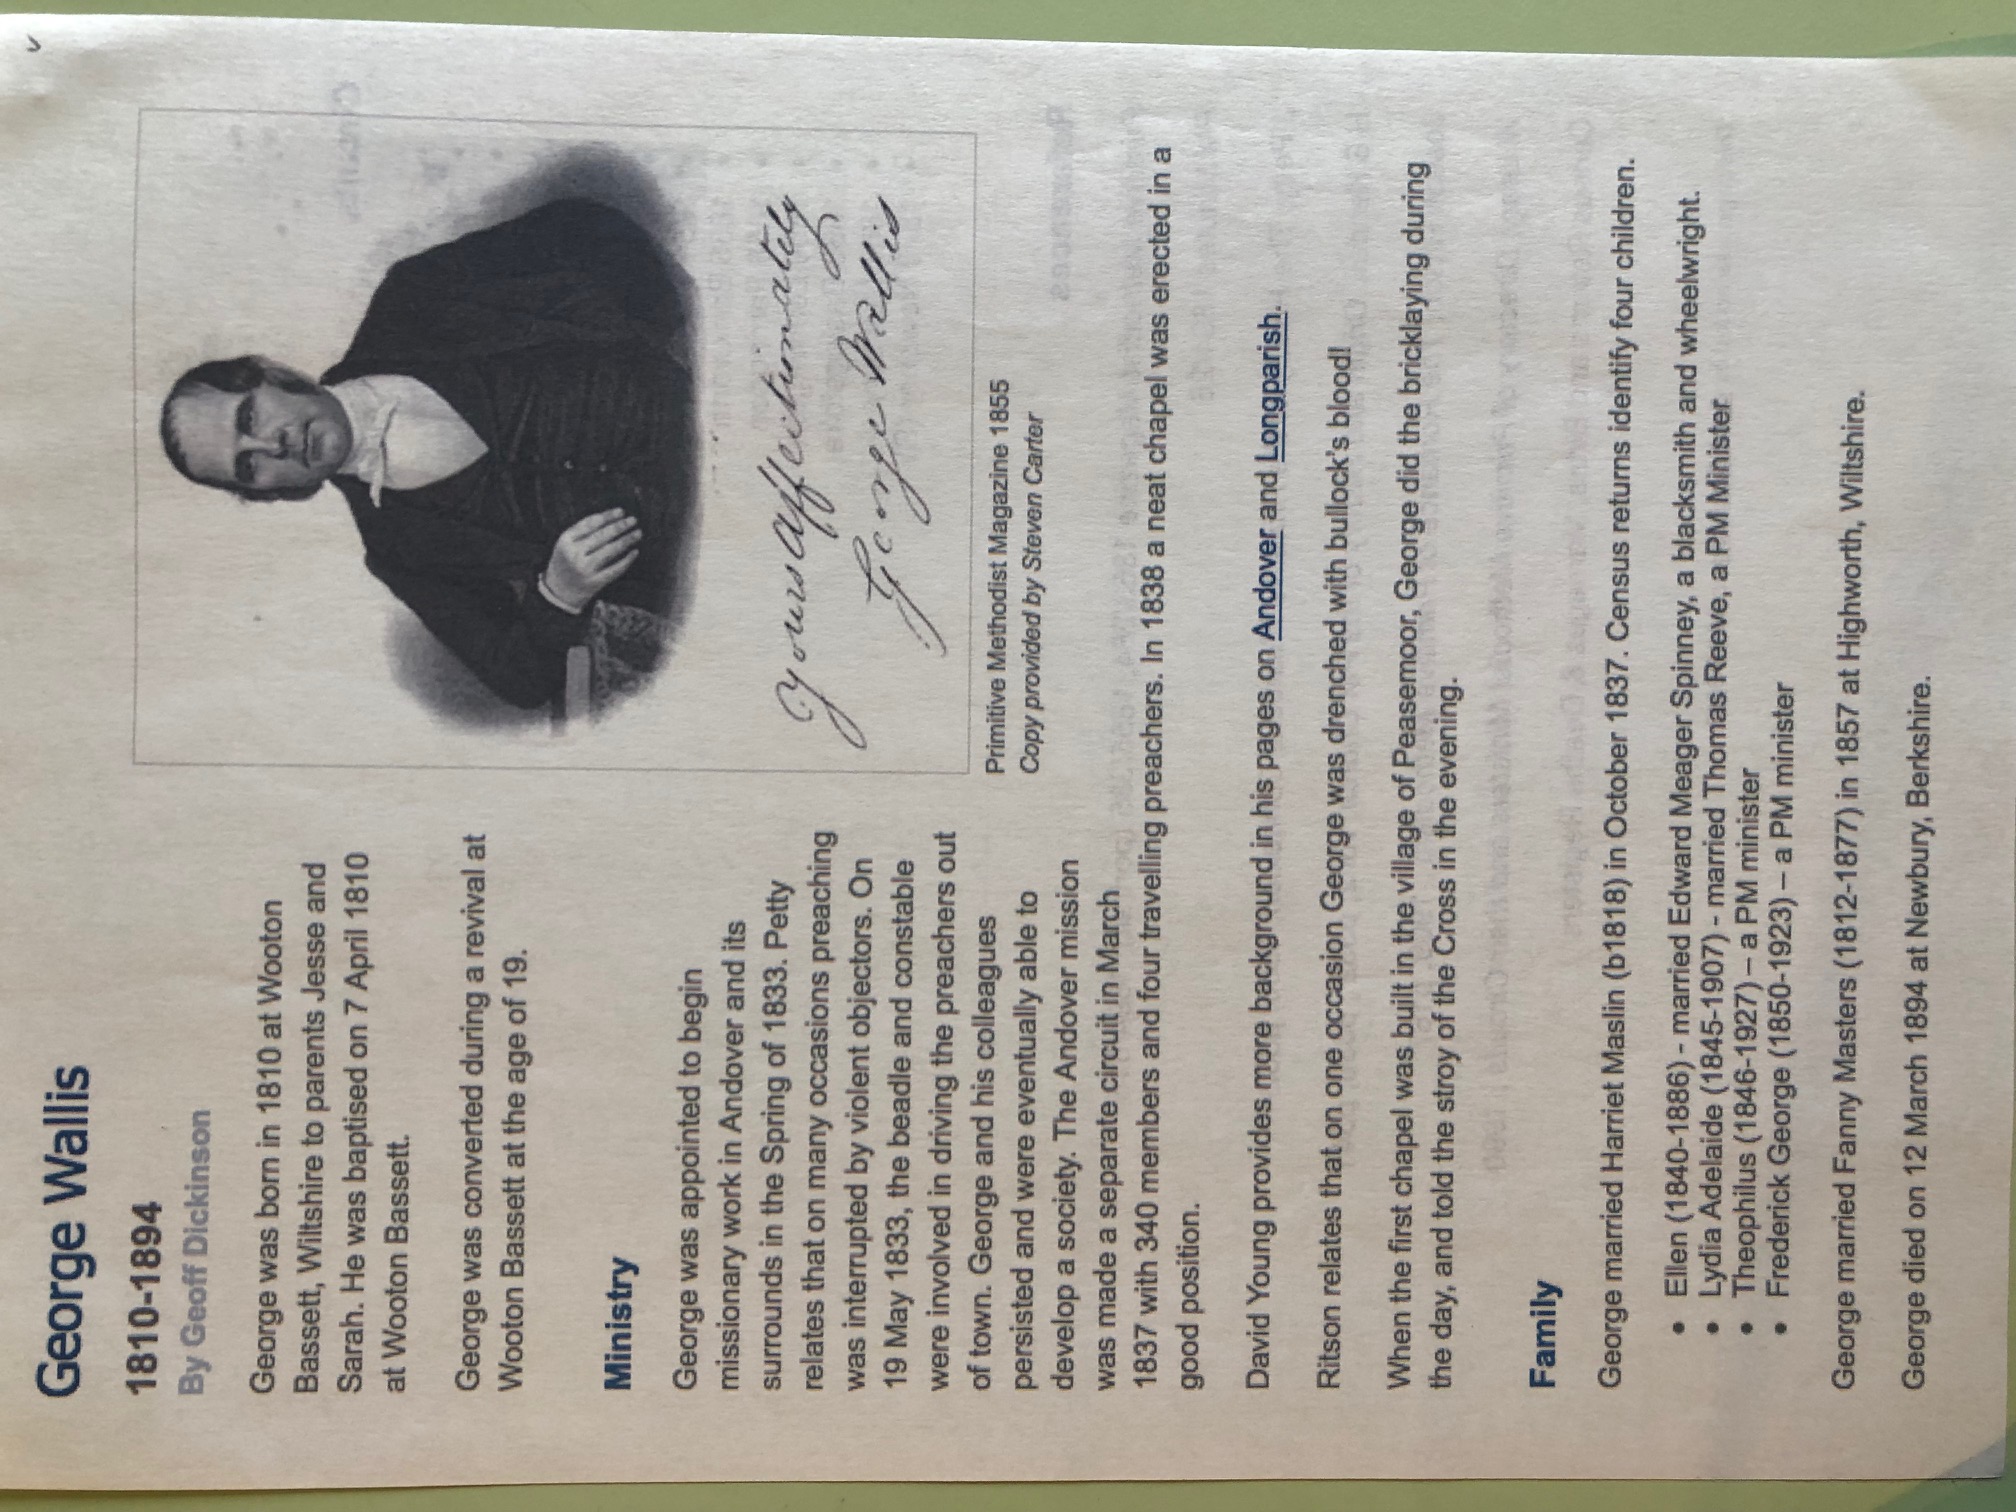 George Wallis
1810-1894
By Geoff Dickinson
George was born in 1810 at Wooton
Bassett, Wiltshire to parents Jesse and
Sarah. He was baptised on 7 April 1810
at Wooton Bassett.
George was converted during a revival at
Wooton Bassett at the age of 19.
Yours Affectionately
George Wallis
Primitive Methodist Magazine 1855
Copy provided by Steven Carter
Ministry
George was appointed to begin
missionary work in Andover and its
surrounds in the Spring of 1833. Petty
relates that on many occasions preaching
was interrupted by violent objectors. On
19 May 1833, the beadle and constable
were involved in driving the preachers out
of town. George and his colleagues
persisted and were eventually able to
develop a society. The Andover mission
was made a separate circuit in March
1837 with 340 members and four travelling preachers. In 1838 a neat chapel was erected in a
good position.
David Young provides more background in his pages on Andover and Longparish.
Ritson relates that on one occasion George was drenched with bullock's blood!
When the first chapel was built in the village of Peasemoor, George did the bricklaying during
the day, and told the stroy of the Cross in the evening.
Family
George married Harriet Maslin (b1818) in October 1837. Census returns identify four children.
• Ellen (1840-1886) - married Edward Meager Spinney, a blacksmith and wheelwright.
• Lydia Adelaide (1845-1907) - married Thomas Reeve, a PM Minister
• Theophilus (1846-1927) – a PM minister
• Frederick George (1850-1923) – a PM minister
George married Fanny Masters (1812-1877) in 1857 at Highworth, Wiltshire.
George died on 12 March 1894 at Newbury, Berkshire.